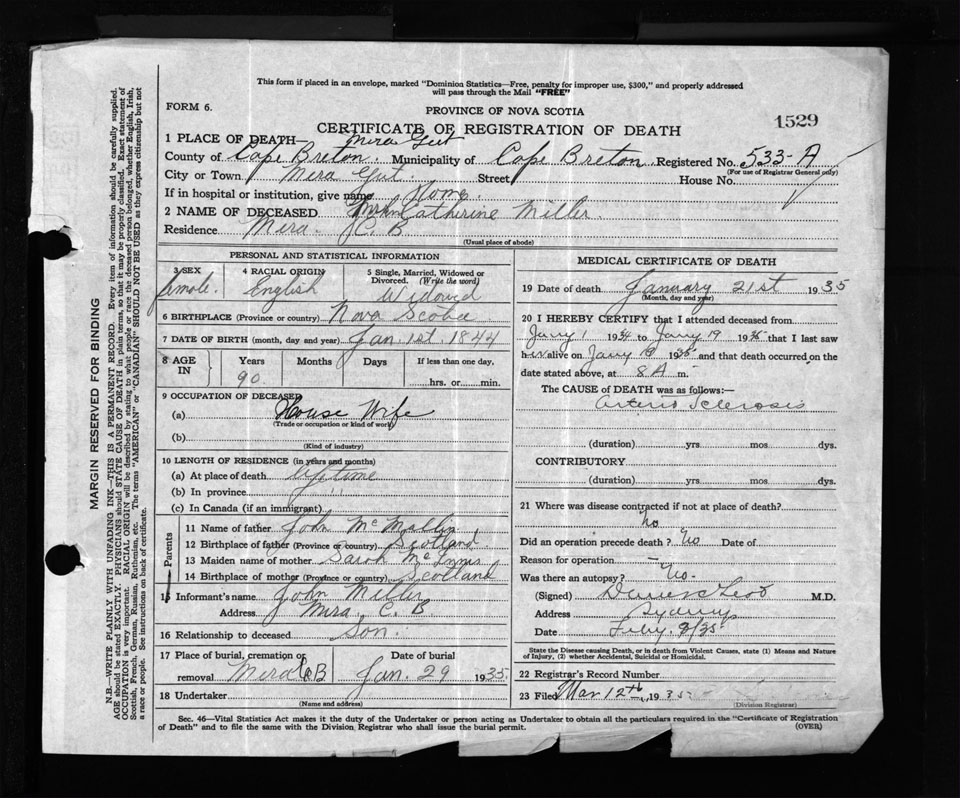 This form if placed in an envelope, marked "Dominion Statistics—Free, penalty for improper use, $300," and properly addressed
will pass through the Mail "FREE"
FORM 6.
PROVINCE OF NOVA SCOTIA
1529
CERTIFICATE OF REGISTRATION OF DEATH
1 PLACE OF DEATH— Mira Gut
County of Cape Breton. Municipality of Cape Breton. Registered No. 533-A
(For use of Registrar General only)
City or Town Mira Gut. Street House No.
If in hospital or institution, give name Home.
2 NAME OF DECEASED Catherine Miller.
Residence Mira. C. B
(Usual place of abode)
PERSONAL AND STATISTICAL INFORMATION
3 SEX
female.
4 RACIAL ORIGIN
English
5 Single, Married, Widowed or
Divorced. (Write the word)
Widowed
6 BIRTHPLACE (Province or country) Nova Scotia
7 DATE OF BIRTH (month, day and year) Jan. 1st. 1844
8 AGE
IN
Years
90.
Months
Days
If less than one day,
hrs. or min.
9 OCCUPATION OF DECEASED
(a) House Wife
(Trade or occupation or kind of work)
(b)
(Kind of industry)
10 LENGTH OF RESIDENCE (in years and months)
(a) At place of death
(b) In province ''
(c) In Canada (if an immigrant)
Parents
11 Name of father John
12 Birthplace of father (Province or country) Scotland.
13 Maiden name of mother Sarah McInnis
14 Birthplace of mother (Province or country) Scotland
15 Informant's name John Miller
Address Mira. C. B
16 Relationship to deceased Son.
17 Place of burial, cremation or
removal Mira C.B
Date of burial
Jan. 29 1935
18 Undertaker
(Name and address)
MEDICAL CERTIFICATE OF DEATH
19 Date of death January 21st 1935
(Month, day and year)
20 I HEREBY CERTIFY that I attended deceased from
Jany 1 1934 to Jany 19 1935 that I last saw
her alive on Jany 19 1935 and that death occurred on the
date stated above, at 8 A m.
The CAUSE of DEATH was as follows:—
Arterio Sclerosis
(duration) yrs. mos. dys.
CONTRIBUTORY
(duration) yrs. mos. dys.
21 Where was disease contracted if not at place of death?
No
Did an operation precede death? No Date of
Reason for operation —
Was there an autopsy? No.
(Signed) M.D.
Address Sydney
Date Feby.
State the Disease causing Death, or in death from Violent Causes, state (1) Means and Nature
of Injury, (2) whether Accidental, Suicidal or Homicidal.
22 Registrar's Record Number
23 Filed Mar 12th 1935
(Division Registrar)
Sec. 46—Vital Statistics Act makes it the duty of the Undertaker or person acting as Undertaker to obtain all the particulars required in the "Certificate of Registration
of Death" and to file the same with the Division Registrar who shall issue the burial permit.
(OVER)
MARGIN RESERVED FOR BINDING
N.B.—WRITE PLAINLY WITH UNFADING INK—THIS IS A PERMANENT RECORD. Every item of information should be carefully supplied.
AGE should be stated EXACTLY. PHYSICIANS should STATE CAUSE OF DEATH in plain terms, so that it may be properly classified. Exact statement of
OCCUPATION is very important. RACIAL ORIGIN will be described by stating to what people or race the deceased person belonged, whether English, Irish,
Scottish, French, German, Russian, Ruthenian, etc. The terms "AMERICAN" or "CANADIAN" SHOULD NOT BE USED as they express citizenship but not
a race or people. See instructions on back of certificate.